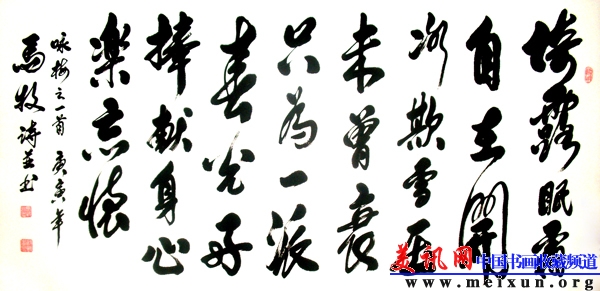 倚露眠霜
自在開
冷欺雪压
未曾衰
只為一派
春光好
捧献身心
楽忘懷
咏梅之一首 庚寅年
馬牧诗并书
美讯网 中国书画收藏频道
www.meixun.org